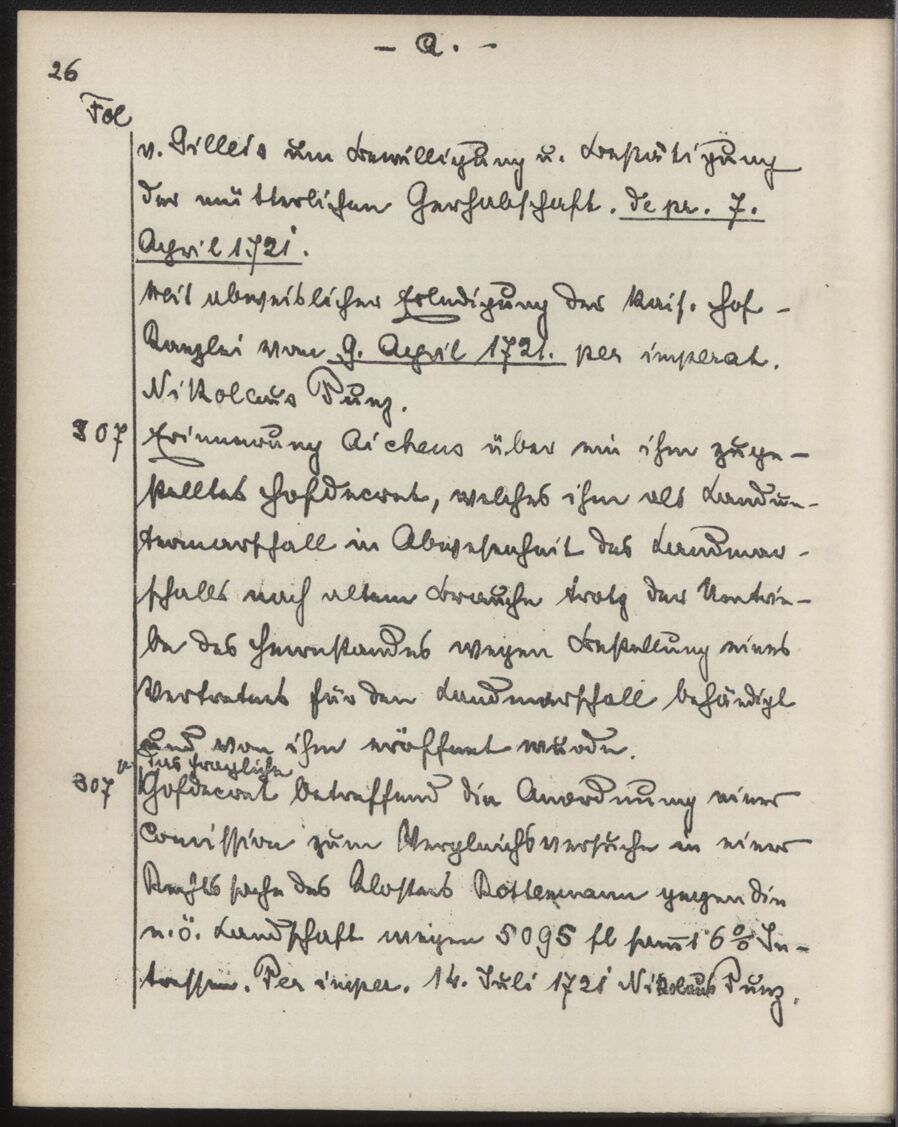 - A. -
26
Fol
v. Gilleis um Bewilligung u. Bestätigung
der mütterlichen Gerhabschaft. de pr. 7.
April 1721.
Mit abweislicher Erledigung der Kais. Hof-
Kanzlei vom 9. April 1721. per imperat.
Nikolaus Punz.
307 Erinnerung Aichens über ein ihm zuge-
stelltes Hofdecret, welches ihm als Landun-
termarschall in Abwesenheit des Landmar-
schalls nach altem Brauche trotz der Umtrie-
be des Herrnstandes wegen Bestellung eines
Vertreters für den Landmarschall behändigt
und von ihm eröffnet wurde.
das fragliche
307 a Hofdecret betreffend die Anordnung einer
Comission zum Vergleichsversuche in einer
Rechtssache des Klosters Rottenmann gegen die
n.ö. Landschaft wegen 5095 fl sammt 6 % In-
tressen. Per imper. 14. Juli 1721 Nikolaus Punz.